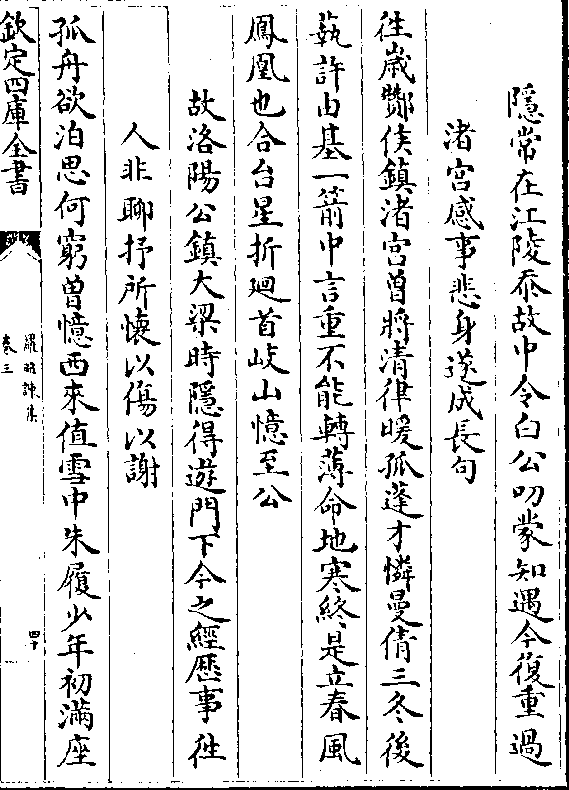 隱常在江陵忝故中令白公叨䝉知遇今復重過
渚宮感事悲身遂成長句
徃嵗酇侯鎮渚宮曽將清律暖孤蓬才憐曼倩三冬後
藝許由基一箭中言重不能轉薄命地寒終是立春風
鳳凰也合台星折廻首岐山憶至公
故洛陽公鎮大梁時隱得遊門下今之經歴事徃
人非聊抒所懐以傷以謝
孤舟欲泊思何窮曽憶西來值雪中朱履少年初滿座
欽定四庫全書
羅昭諫集
卷三
四十